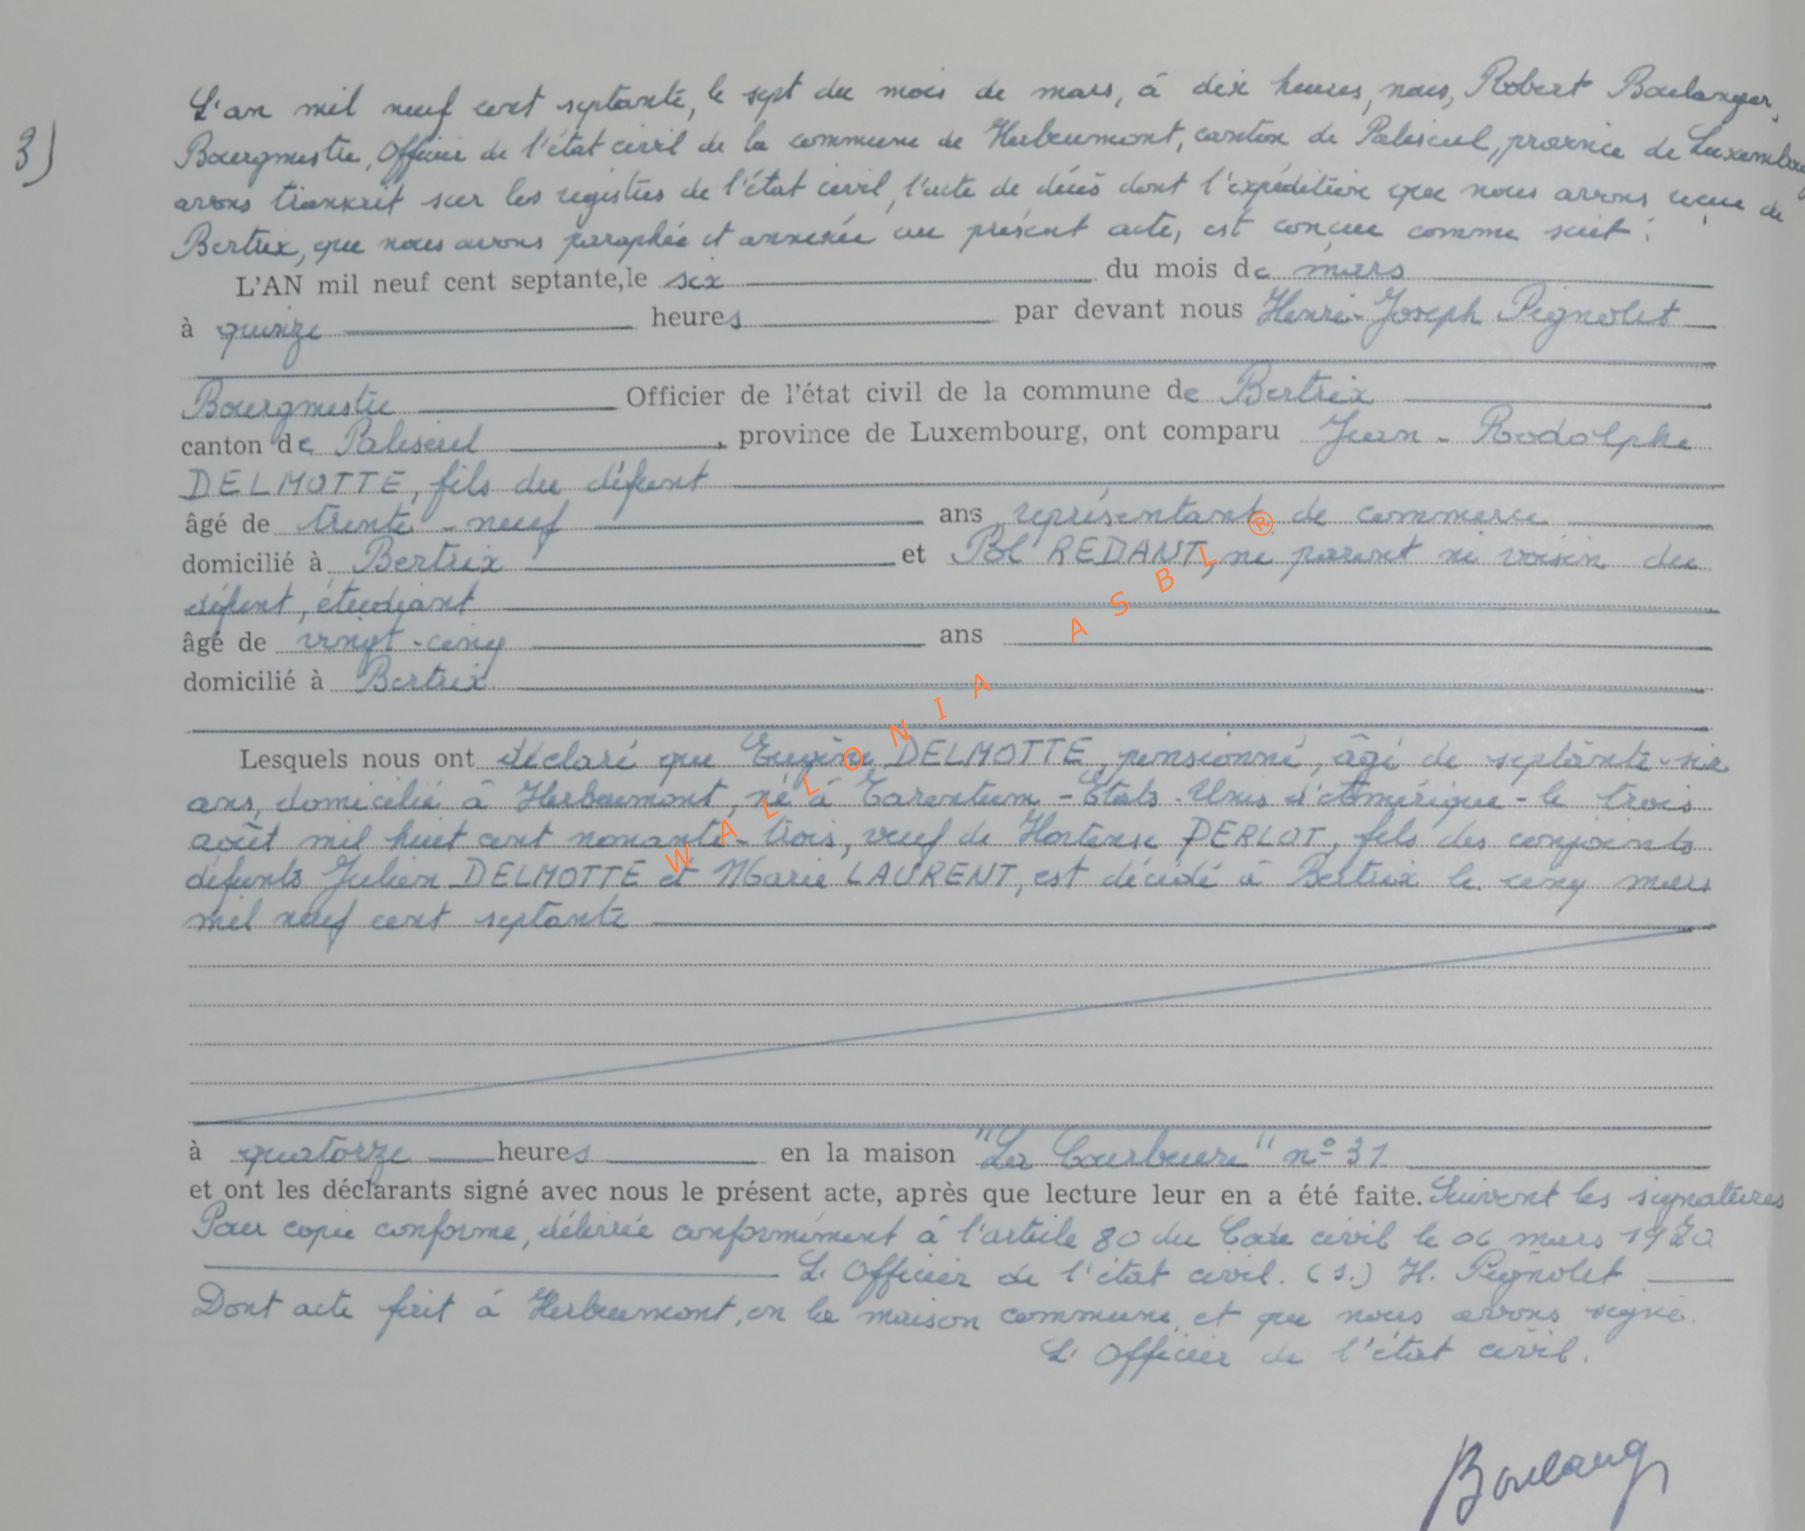 3)
L'an mil neuf cent septante, le sept du mois de mars, à dix heures, nous, Robert Boulanger,
Bourgmestre, Officier de l'état civil de la commune de Herbeumont, canton de Paliseul, province de Luxembourg
avons transcrit sur les registres de l'état civil, l'acte de décès dont l'expédition que nous avons reçue de
Bertrix, que nous avons paraphée et annexée au présent acte, est conçue comme suit :
L'AN mil neuf cent septante, le six du mois de mars
à quinze heures par devant nous Henri-Joseph Pignolet
Bourgmestre Officier de l'état civil de la commune de Bertrix
canton de Paliseul, province de Luxembourg, ont comparu Jean-Rodolphe
DELMOTTE, fils du défunt
âgé de trente-neuf ans représentant de commerce
domicilié à Bertrix et Pol REDANT, ni parent ni voisin du
défunt, étudiant
âgé de vingt-cinq ans
domicilié à Bertrix
Lesquels nous ont déclaré que Eugène DELMOTTE, pensionné, âgé de septante-six
ans, domicilié à Herbeumont, né à Tarentum - Etats-Unis d'Amérique - le trois
août mil huit cent nonante-trois, veuf de Hortense PERLOT, fils des conjoints
défunts Julien DELMOTTE et Marie LAURENT, est décédé à Bertrix le cinq mars
mil neuf cent septante
à quatorze heures en la maison "La Courbeure" n° 31
et ont les déclarants signé avec nous le présent acte, après que lecture leur en a été faite. Suivent les signatures
Pour copie conforme, délivrée conformément à l'article 80 du Code civil le 06 mars 1970
L'Officier de l'état civil. (s.) H. Pignolet
Dont acte fait à Herbeumont, en la maison commune, et que nous avons signé.
L'Officier de l'état civil.
Boulang
WALLONIA ASBL ®